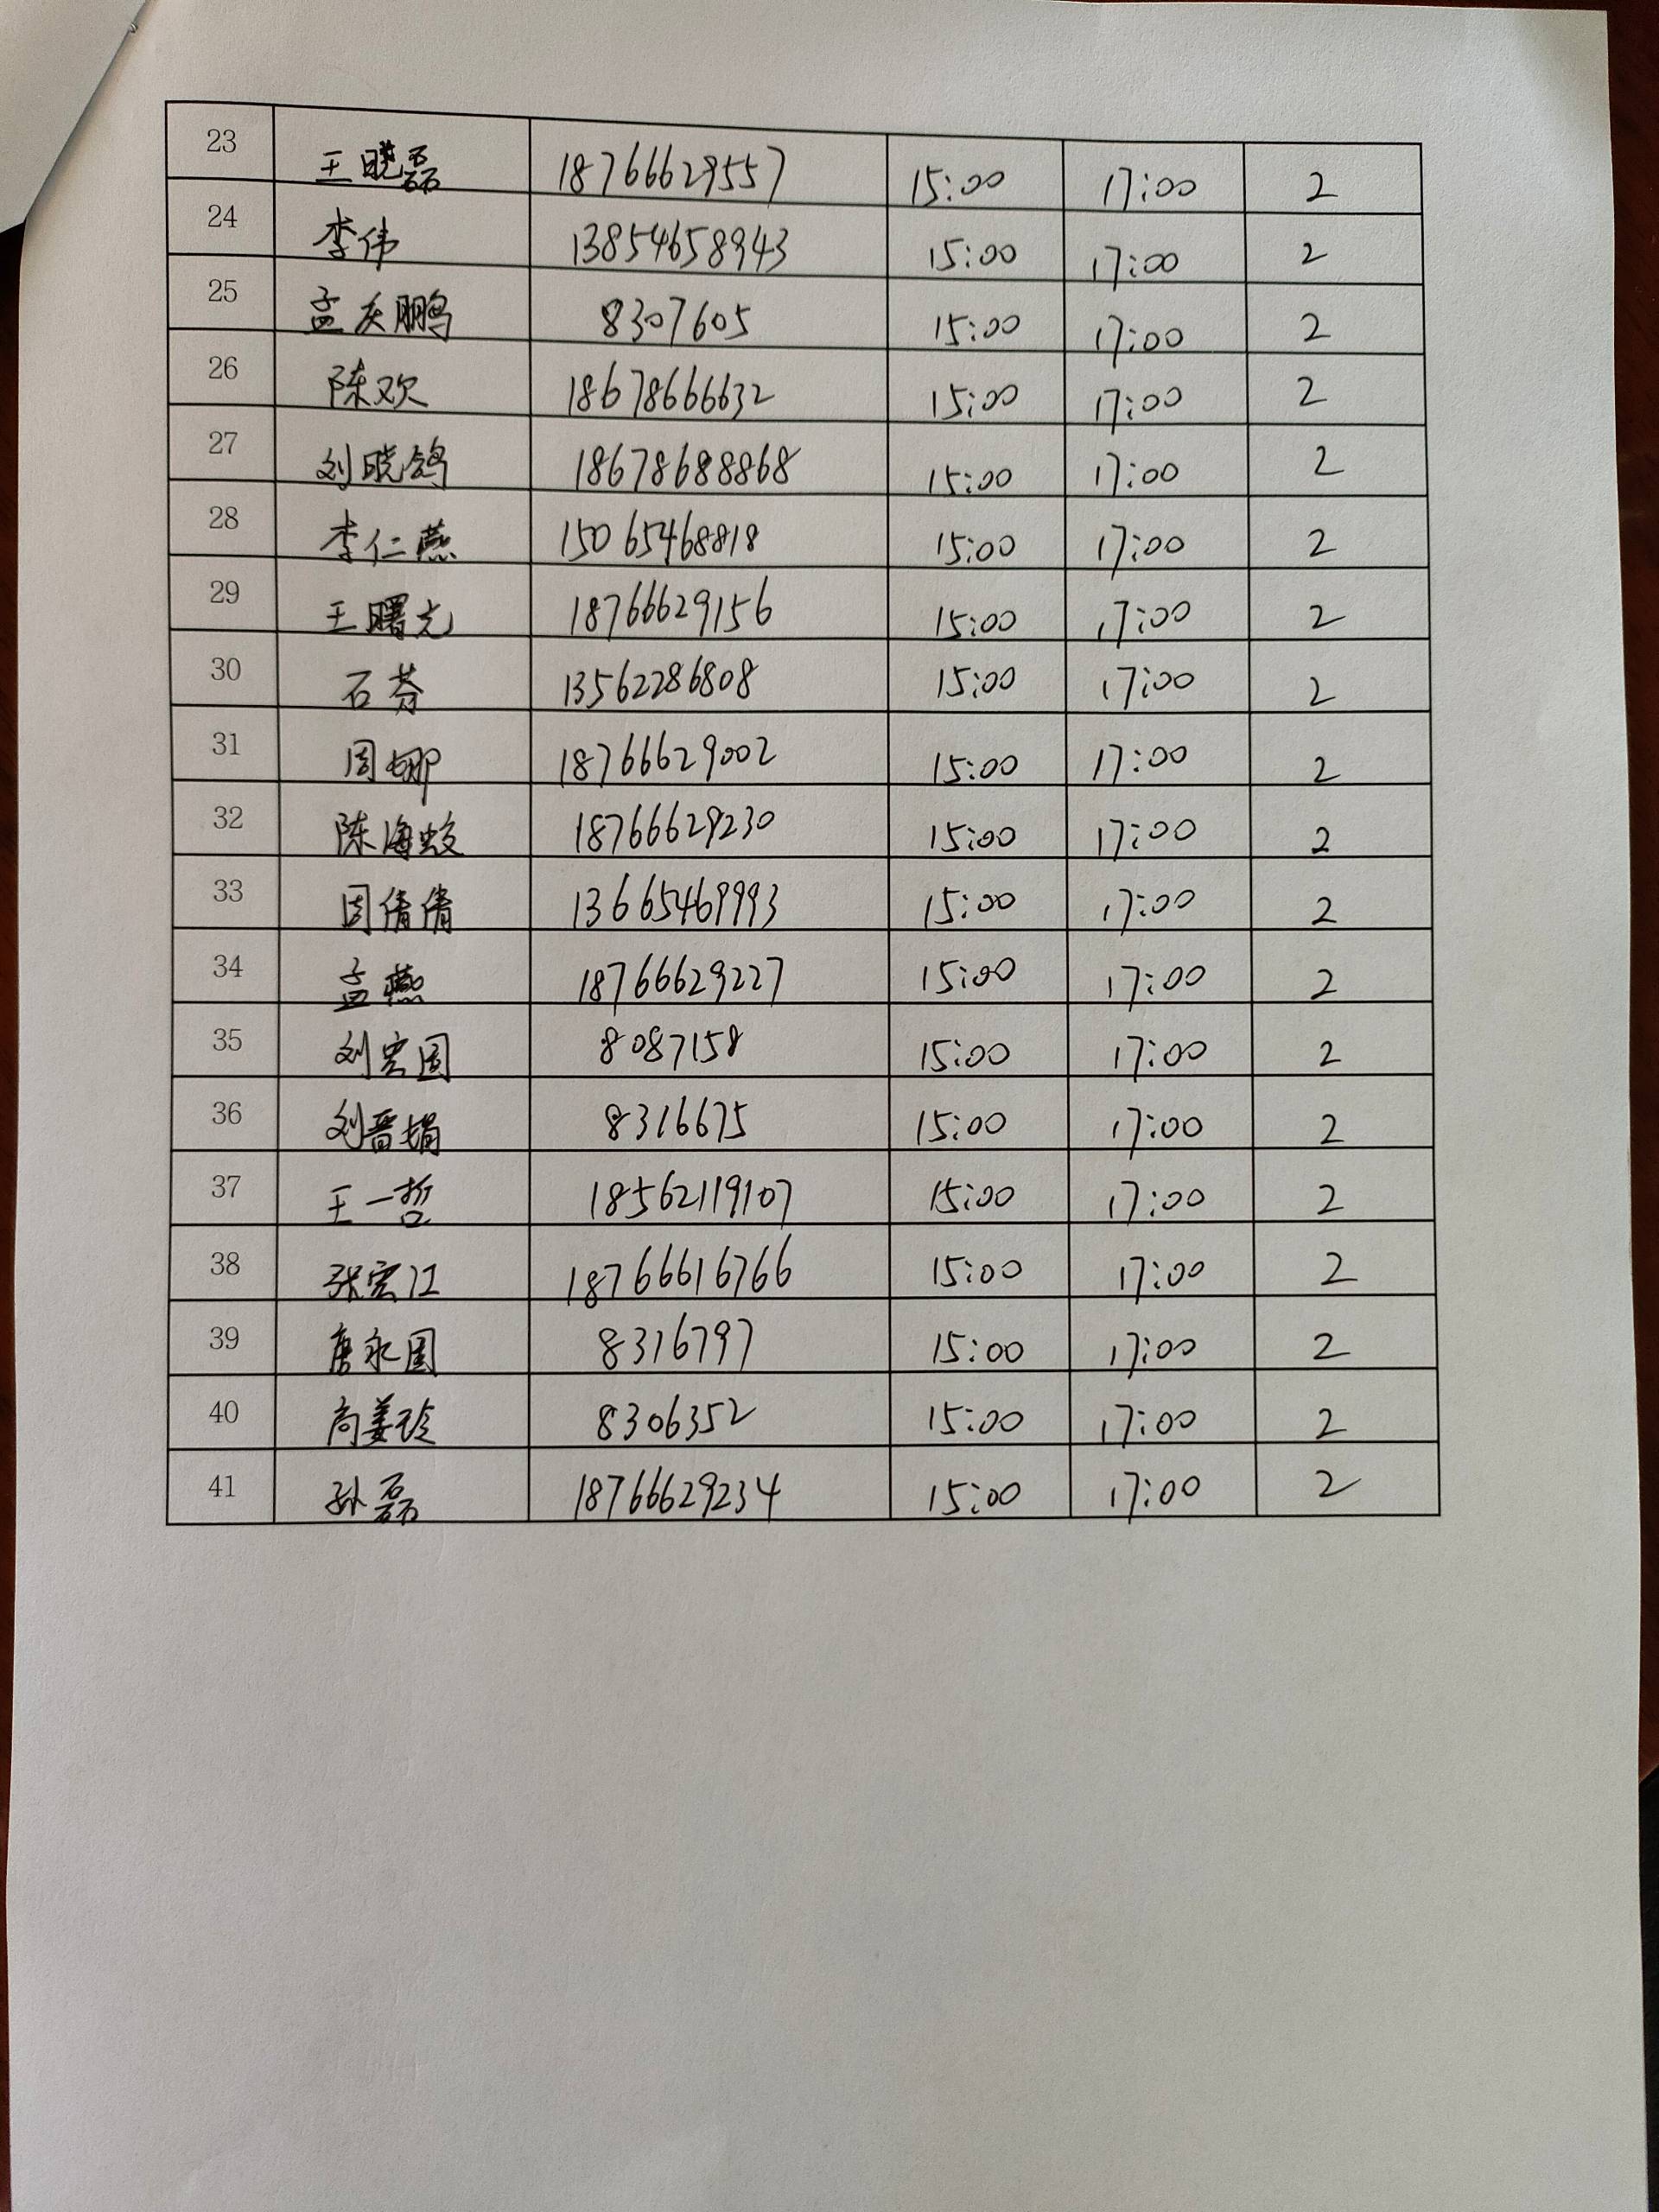 23 王晓磊 18766629557 15:00 17:00 2
24 李伟 13854658943 15:00 17:00 2
25 孟庆鹏 8307605 15:00 17:00 2
26 陈欢 18678666632 15:00 17:00 2
27 刘晓鸽 18678688868 15:00 17:00 2
28 李仁燕 15065468818 15:00 17:00 2
29 王曙光 18766629156 15:00 17:00 2
30 石芬 13562286808 15:00 17:00 2
31 周娜 18766629002 15:00 17:00 2
32 陈海蛟 18766629230 15:00 17:00 2
33 周倩倩 13665469993 15:00 17:00 2
34 孟燕 18766629227 15:00 17:00 2
35 刘宏国 8087158 15:00 17:00 2
36 刘晋娟 8316675 15:00 17:00 2
37 王一哲 18562119107 15:00 17:00 2
38 张宏江 18766616766 15:00 17:00 2
39 唐永国 8316797 15:00 17:00 2
40 尚姜玲 8306352 15:00 17:00 2
41 孙磊 18766629234 15:00 17:00 2